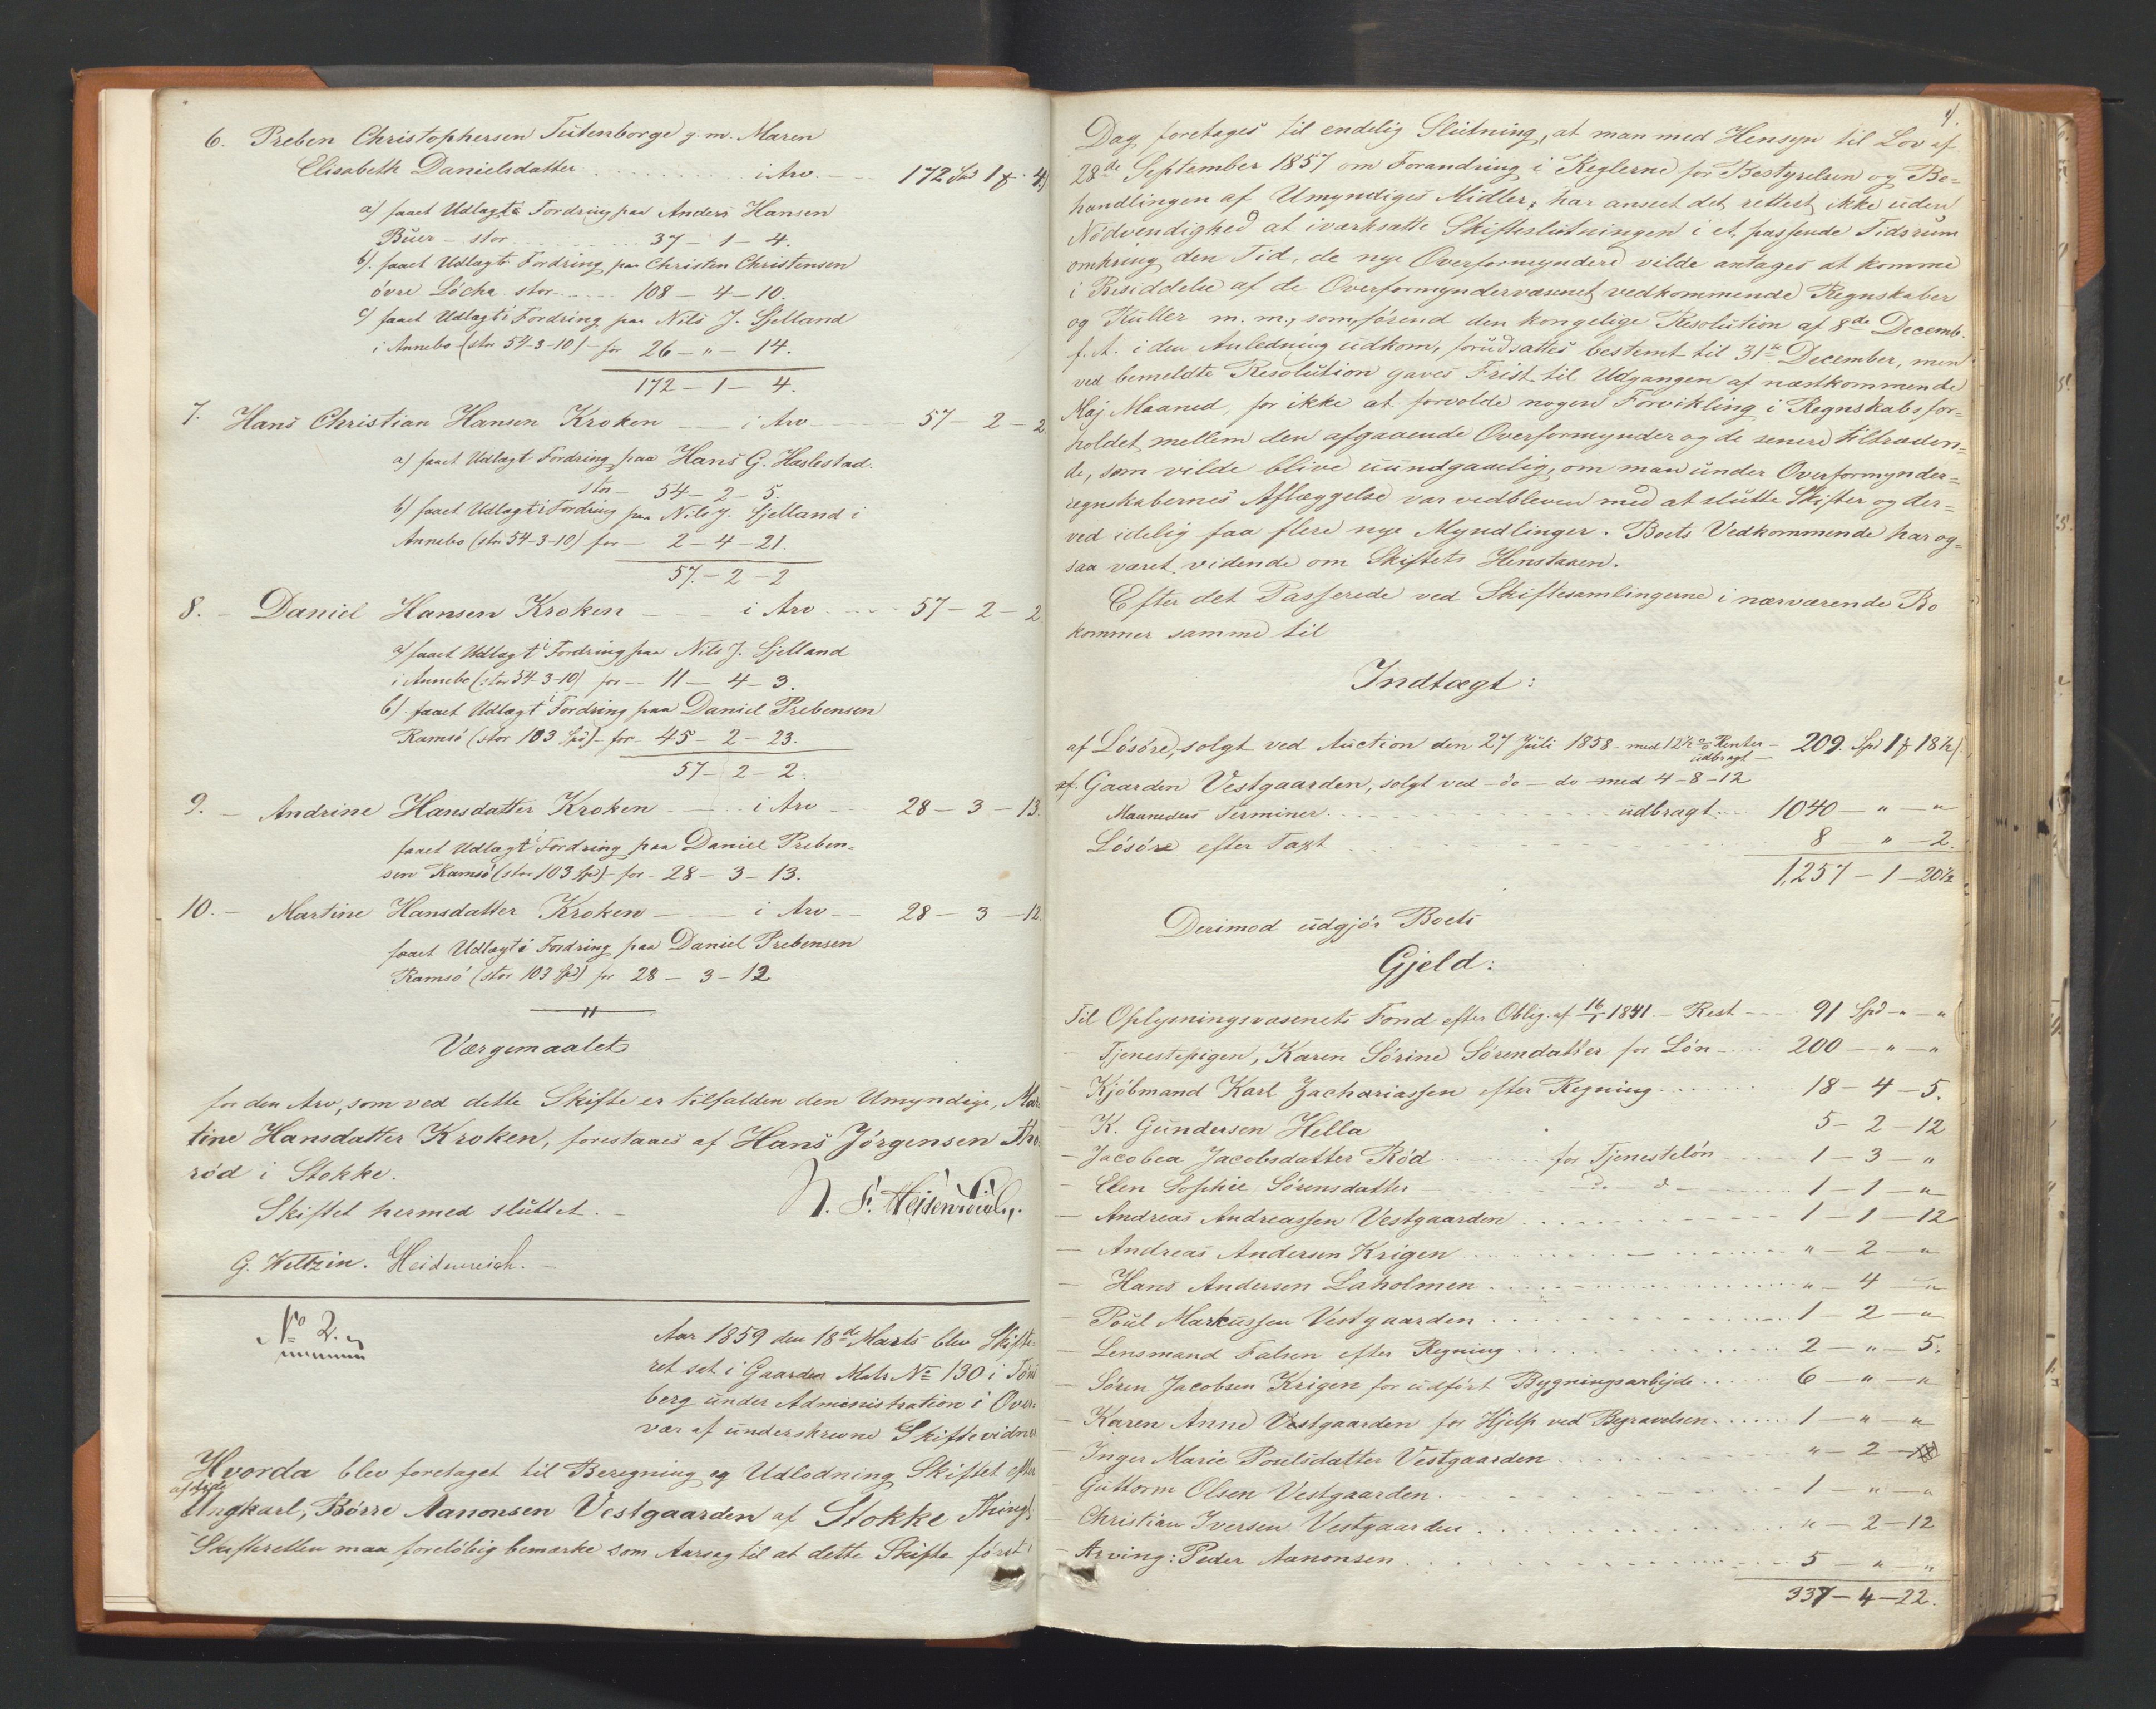 6. Preben Christophersen Tutenborge g. m. Maren
Elisabeth Danielsdatter ........ i Arv. — 172 Spd 1 ₰ 4
a) faaet Udlagt i Fordring paa Anders Hansen
Buer - stor ........ 37 - 1 - 4.
b). faaet Udlagt i Fordring paa Christen Christensen
övre Löcka stor ..... 108 - 4 - 10.
c) faaet Udlagt i Fordring paa Nils J. Sjelland
i Annebo (stor 54-3-10) - for 26 - " - 14.
172 - 1 - 4.
7. Hans Christian Hansen Kroken — i Arv — 57 - 2 - 2.
a) faaet Udlagt Fordring paa Hans G. Haslestad.
stor — 54 - 2 - 5.
b) faaet Udlagt i Fordring paa Nils J. Sjelland i
Annebo (stor 54-3-10) for — 2 - 4 - 21.
57. - 2 - 2
8. - Daniel Hansen Kroken — i Arv — 57 - 2 - 2
a) faaet Udlagt i Fordring paa Nils J. Sjelland
i Annebo (stor 54-3-10) for -- 11 - 4 - 3.
b) faaet Udlagt i Fordring paa Daniel Prebensen
Ramsö (stor 103 Spd) - for - 45 - 2 - 23.
57 - 2 - 2.
9. - Andrine Hansdatter Kroken — i Arv — 28 - 3 - 13.
faaet Udlagt i Fordring paa Daniel Preben=
sen Ramsö (stor 103 Spd) - for - 28 - 3 - 13.
10. - Martine Hansdatter Kroken — i Arv — 28 - 3 - 12.
faaet Udlagt i Fordring paa Daniel Prebensen
Ramsö (stor 103 Spd) for 28 - 3 - 12
Værgemaalet
for den Arv, som ved dette Skifte er tilfalden den Umyndige, Mar
tine Hansdatter Kroken, forestaaes af Hans Jörgensen
röd i Stokke.
Skiftet hermed sluttet. -
G. Weltzin. Heidenreich. -
No 2.
Aar 1859 den 18de Marts blev Skifte
ret sat i Gaarden Matr. No 130 i Töns
berg under Administration i Over=
vær af underskrevne Skiftevidner
Hvorda blev foretaget til Beregning og Udlodning Skiftet efter
afdöde
Ungkarl, Börre Aanonsen Vestgaarden af Stokke Thingl.
Skifteretten maa foreløbig bemærke som Aarsag til at dette Skifte först i
4.
Dag foretages til endelig Slutning, at man med Hensyn til Lov af
28de September 1857 om Forandring i Reglerne for Bestyrelsen og Be=
handlingen af Umyndiges Midler, har anseet det rettest ikke uden
Nödvendighed at iværksætte Skifteslutningen i et passende Tidsrum
omkring den Tid, de nye Overformyndere vilde antages at komme
i Besiddelse af de Overformyndervæsenet vedkommende Regnskaber
og m. m., som, förend den kongelige Resolution af 8de Decemb.
f. A. i den Anledning udkom, forudsattes bestemt til 31te December, men
ved bemeldte Resolution gaves Frist til Udgangen af næstkommende
Maj Maaned, for ikke at forvolde nogen Forvikling i Regnskabsfor=
holdet mellem den afgaaende Overformynder og de senere tiltræden=
de, som vilde blive uundgaaelig, om man under Overformynder=
regnskabernes Aflæggelse var vedbleven med at slutte Skifter og der=
ved idelig faa flere nye Myndlinger. Boets Vedkommende har og=
saa været vidende om Skiftets Henstaaen.
Efter det Passerede ved Skiftesamlingerne i nærværende Bo
kommer samme til
Indtægt:
af Lösöre, solgt ved Auction den 27 Juli 1858 med 12½ % Renter — 209. Spd 1 ₰ 18½
udbragt —
af Gaarden Vestgaarden, solgt ved - do - do - med 4 - 8 - 12
Maaneders Terminer ........ udbragt: 1040 - " - "
Lösöre efter Taxt ........ 8 - " - 2.
1,257 - 1 - 20½
Derimod udgjör Boets
Gjeld:
Til Oplysningsvæsenets Fond efter Oblig. af 16/1 1841 - Rest — 91 Spd - " - "
- Tjenestepigen, Karen Sörine Sörendatter for Lön — 200 - " - "
- Kjöbmand Karl Zachariassen efter Regning ...... 18 - 4 - 5.
- K. Gundersen Hella 5 - 2 - 12
- Jacobea Jacobsdatter Röd ...... for Tjenestelön — 1 - 3 - "
- Elen Sophie Sörensdatter — Do - d — 1 - 1 - "
- Andreas Andreassen Vestgaarden ........ 1 - 1 - 12
- Andreas Andersen Krigen ........ " - 2 - "
- Hans Andersen Laholmen ........ " - 4 - "
- Poul Markussen Vestgaarden ........ 1 - 2 - "
- Lensmand Falsen efter Regning ........ 2 - " - 5.
- Sören Jacobsen Krigen for udfört Bygningsarbejde ...... 6 - " - "
- Karen Anne Vestgaarden for Hjelp ved Begravelsen ...... 1 - " - "
- Inger Marie Poulsdatter Vestgaarden ........ " - 2 -
- Guttorm Olsen Vestgaarden. ........ 1 - " - "
- Christian Iversen Vestgaarden ........ " - 2 - 12
- Arving: Peder Aanonsen ........ 5 - " - "
337 - 4 - 22.